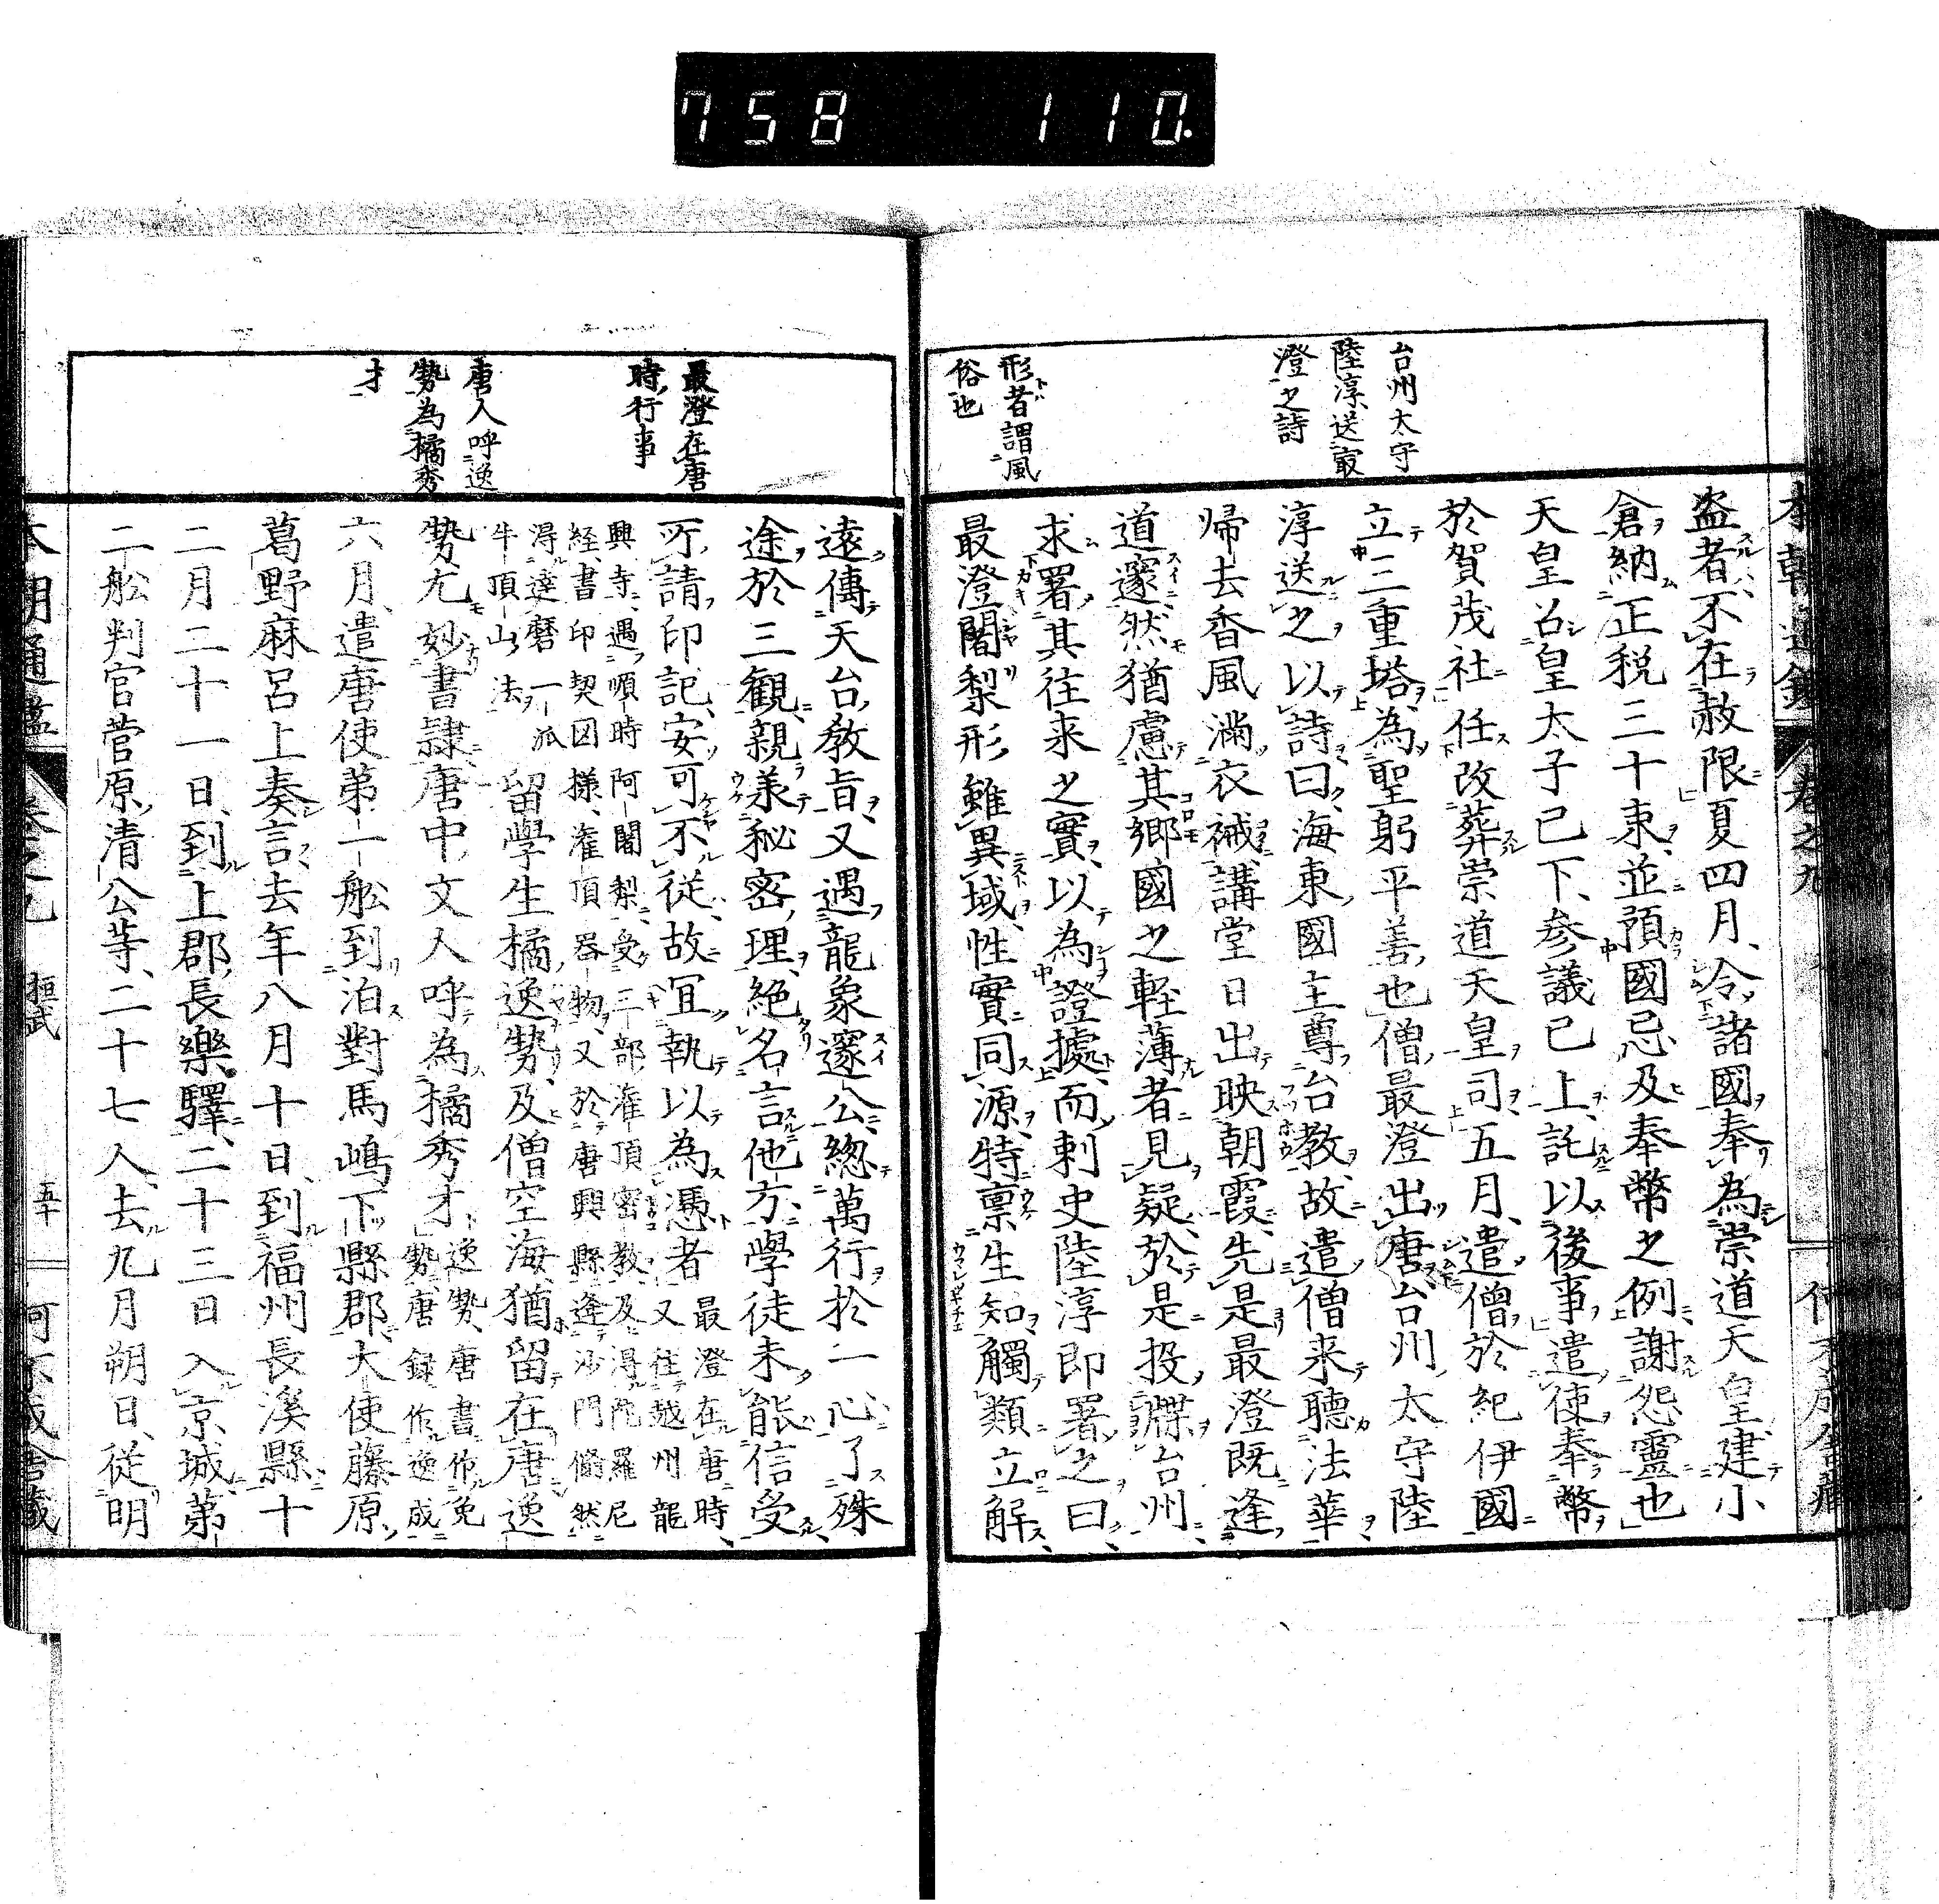 758 110.
台州太守
陸淳送最
澄之詩
形者謂風
俗也
盗者不在赦限夏四月令諸國奉為崇道天皇建小
倉納正税三十束並預國忌及奉幣之例謝怨靈也
天皇召皇太子已下参議已上託以後事遣使奉幣
於賀茂社任改葬崇道天皇司五月遣僧於紀伊國
立三重塔為聖躬平善也僧最澄出唐台州太守陸
淳送之以詩曰海東國主尊台教故遣僧来聴法華
帰去香風満衣裓講堂日出映朝霞先是最澄既逢
道邃然猶慮其郷國之軽薄者見疑於是投牒台州
求署其往来之實以為證據而刺史陸淳即署之曰
最澄闍梨形雖異域性實同源特禀生知觸類立解
最澄在唐
時行事
唐人呼逸
勢為橘秀
才
遠傳天台教旨又遇龍象邃公緫萬行於一心了殊
途於三観親羕秘密理絶名言他方學徒未能信受
所請印記安可不従故冝執以為憑者 最澄在唐時
又往越州龍
興寺遇順時阿闍梨受三部潅頂密教及得陀羅尼
経書印契図様潅頂器物又於唐興縣逢沙門翛然
得達磨一派
牛頂山法
留學生橘逸勢及僧空海猶留在唐逸
勢尤妙書隷唐中文人呼為橘秀才 逸勢唐書作免
勢唐録作逸成
六月遣唐使第一舩到泊對馬嶋下縣郡大使藤原
葛野麻呂上奏言去年八月十日到福州長溪縣十
二月二十一日到上郡長樂驛二十三日入京城第
二舩判官菅原清公等二十七人去九月朔日従明
本朝通鑑 巻之九 桓武 五十